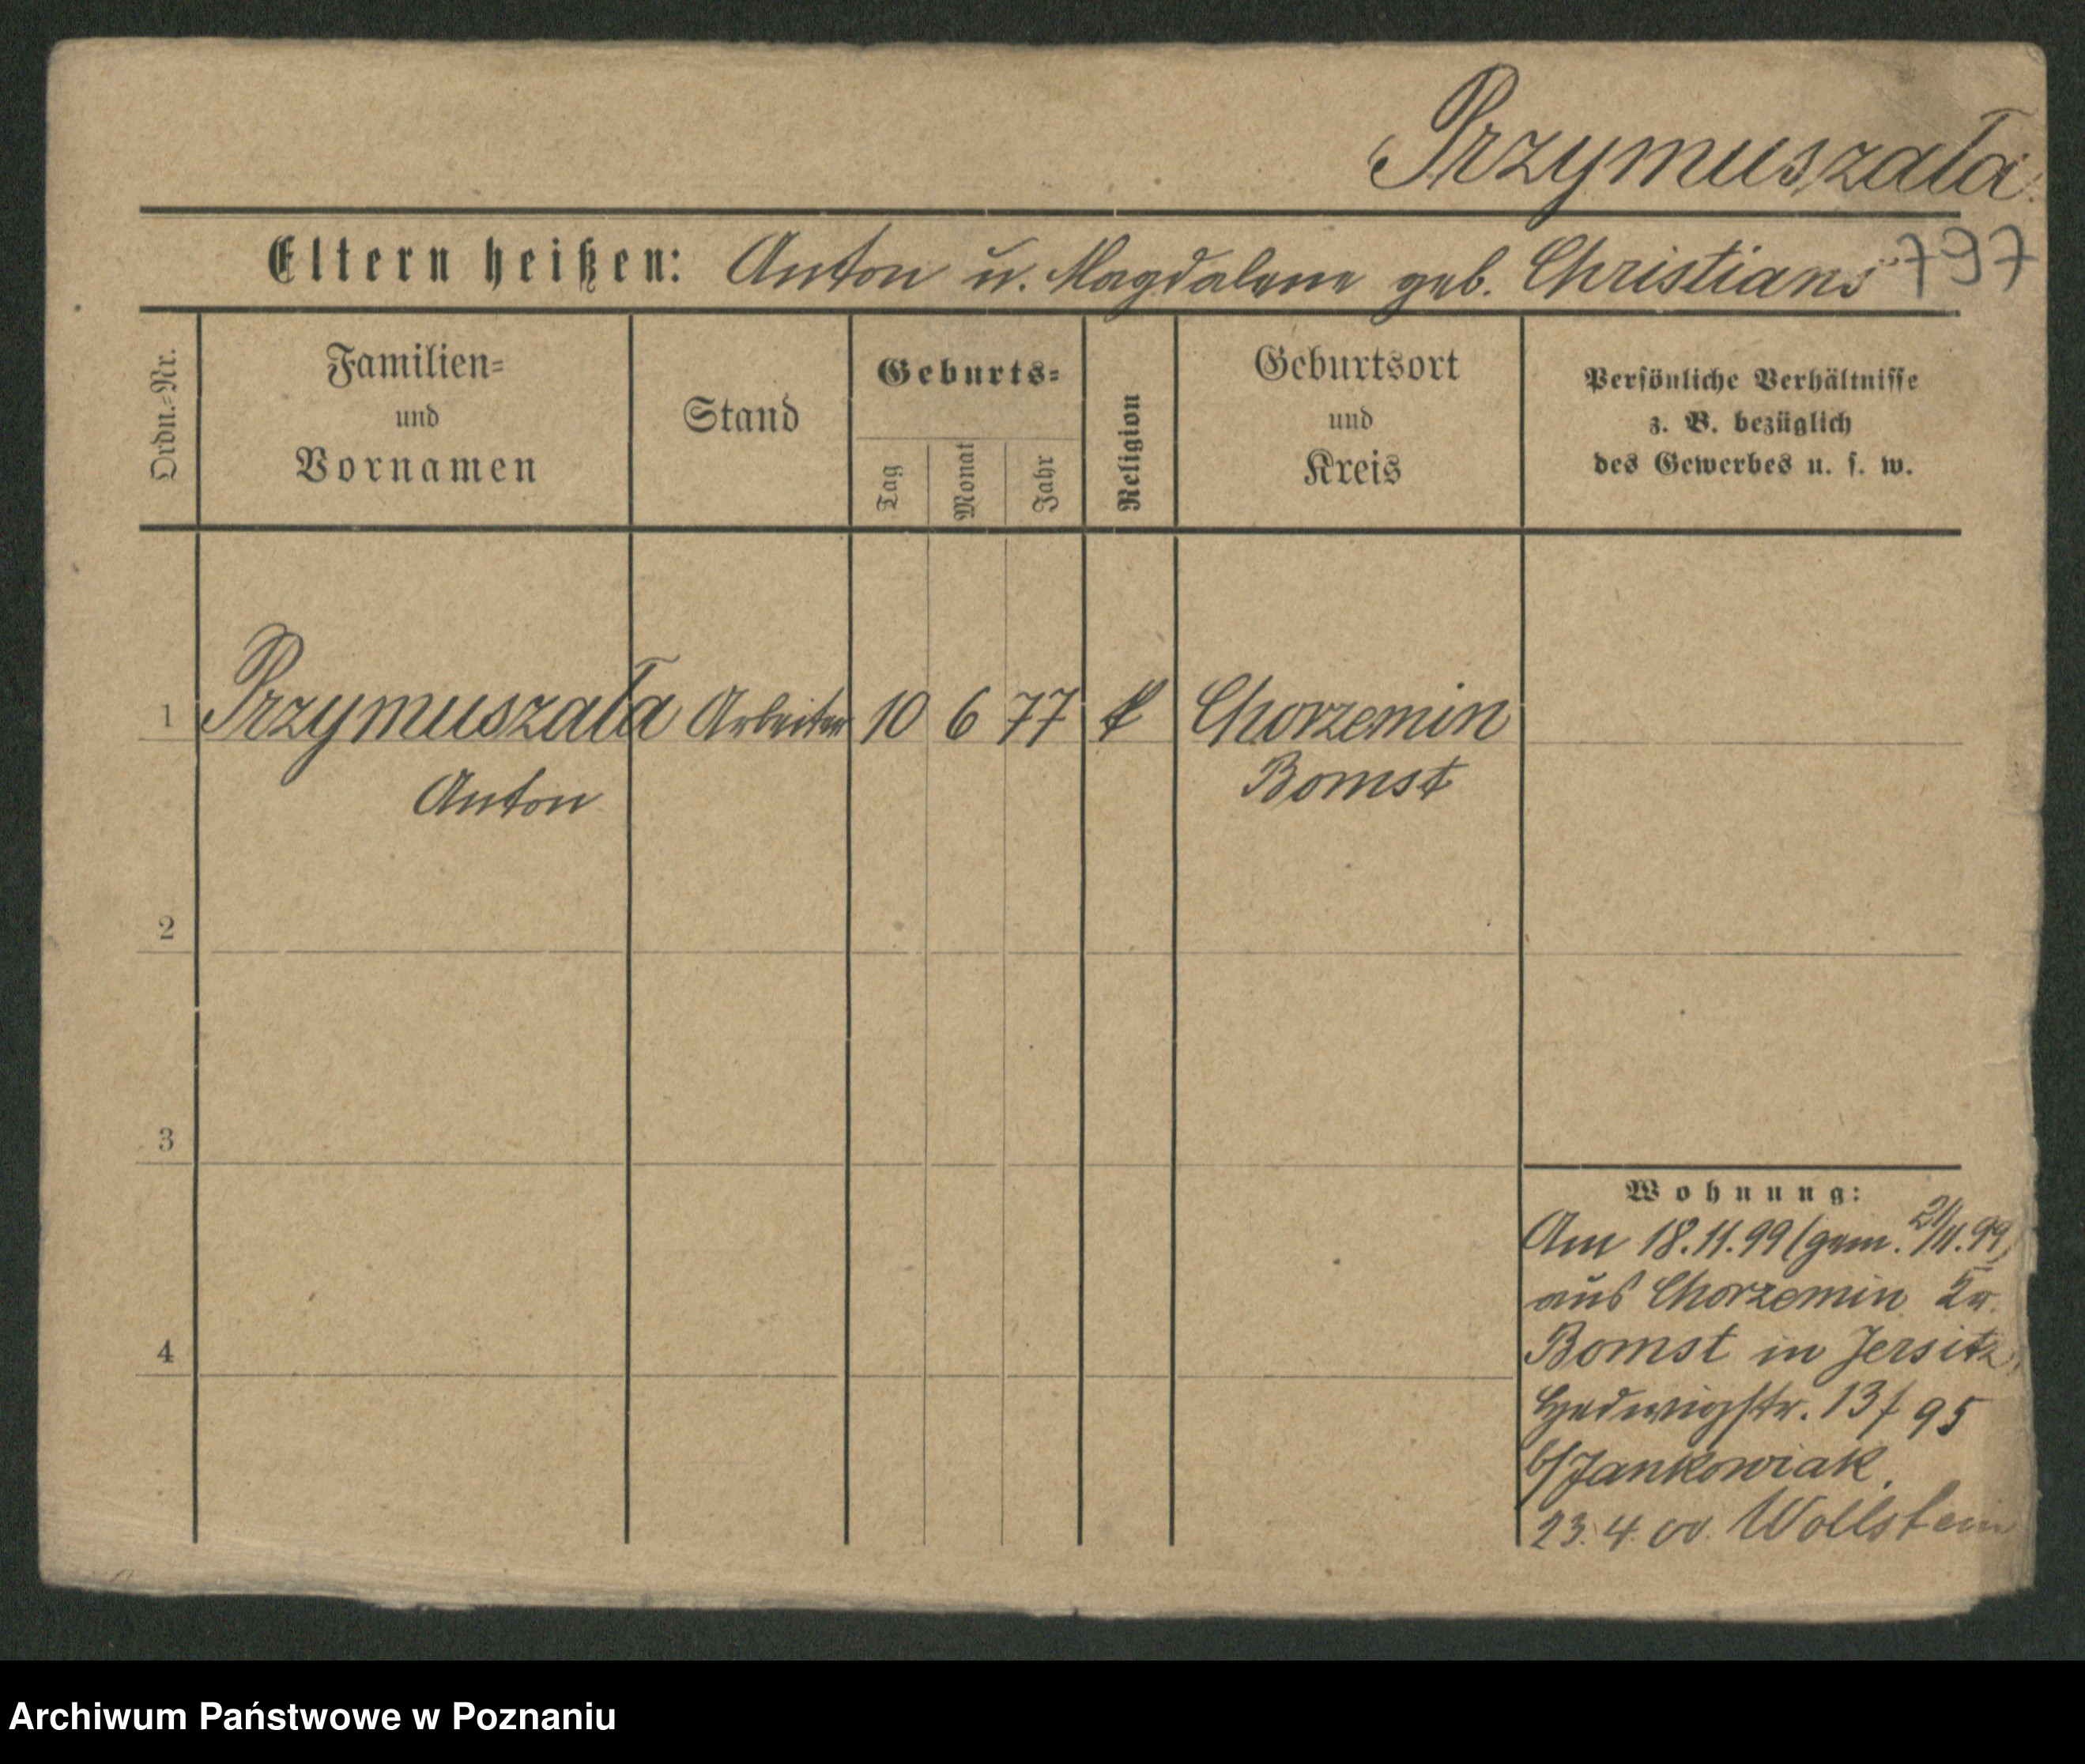 Przymuszała
797
Eltern heißen: Anton u. Magdalene geb. Christians
Ordn.-Nr.
Familien-
und
Vornamen
Stand
Geburts-
Tag
Monat
Jahr
Religion
Geburtsort
und
Kreis
Persönliche Verhältnisse
z. B. bezüglich
des Gewerbes u. s. w.
1 Przymuszała Arbeiter 10 6 77 k Chorzemin
Anton Bomst
2
3
4
Wohnung:
Am 18.11.99 (gem. 21/11.99)
aus Chorzemin Kr.
Bomst in Jersitz,
Hedwigstr. 13/95
b/Jankowiak.
23.4.00. Wollstein
Archiwum Państwowe w Poznaniu